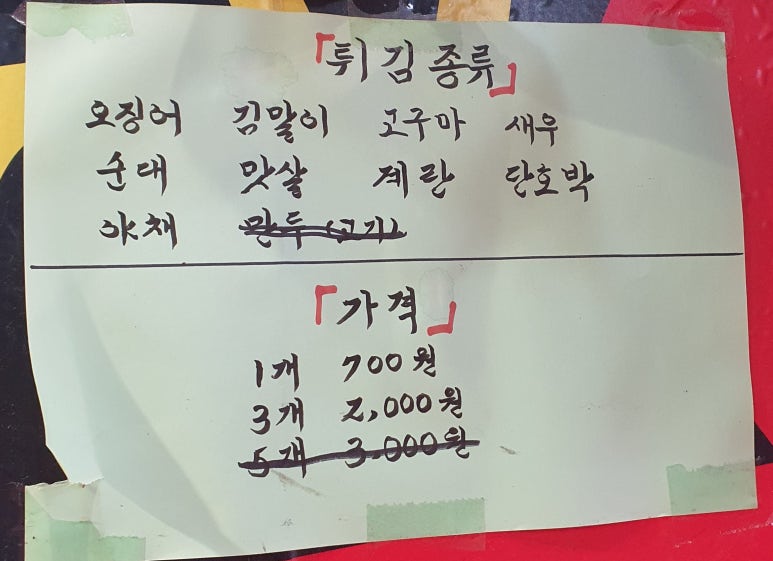 「튀김종류」
오징어 김말이 고구마 새우
순대 맛살 계란 단호박
야채 만두(고기)
「가격」
1개 700원
3개 2,000원
5개 3,000원